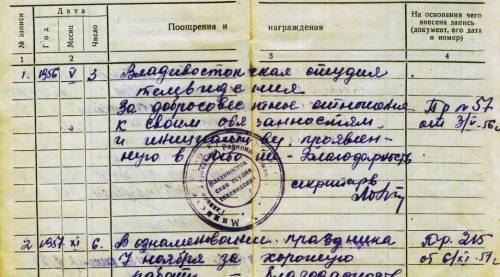 № записи
Дата
Год
Месяц
Число
Поощрения и награждения
На основании чего
внесена запись
(документ, его дата
и номер)
1 2 3 4
1. 1956 V 3 Владивостокская студия
телевидения
За добросовестное отношение Пр № 57
к своим обязанностям от 3/V-56г
и инициативу, проявлен-
ную в работе - Благодарность
секретарь
Владивосток
ская студия
телевидения
2 1957 XI 6. В ознаменование праздника Пр. 215
7 ноября за хорошую от 6/XI-57г
работу - благодарность